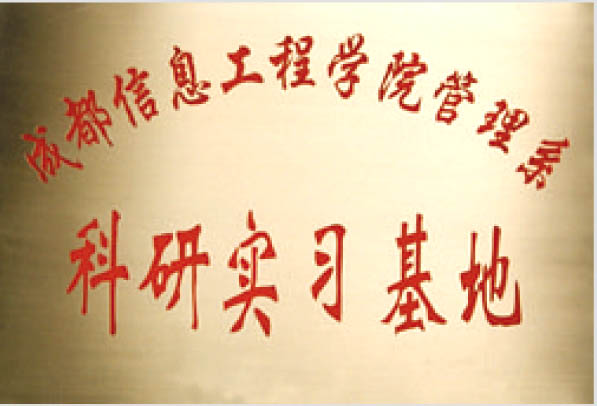 成都信息工程学院管理系
科研实习基地